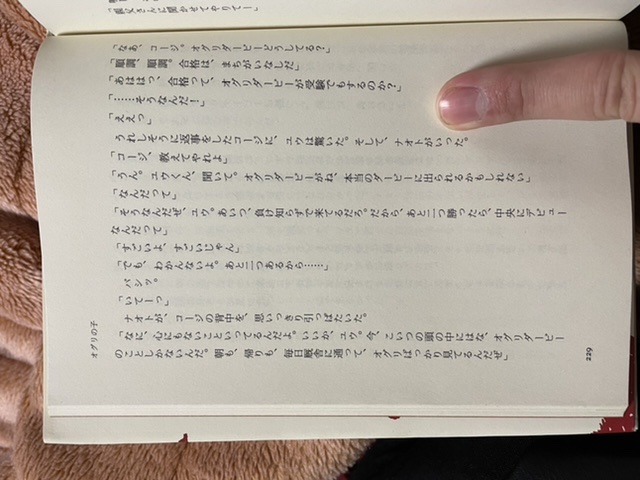 「親父さんに聞かせてやりてー」
「なあ、コージ。オグリダービーどうしてる?」
「順調、順調。合格は、まちがいなしだ」
「あははっ、合格って、オグリダービーが受験でもするのか?」
「……そうなんだ!」
「ええっ」
うれしそうに返事をしたコージに、ユウは驚いた。そして、ナオトがいった。
「コージ、教えてやれよ」
「うん。ユウくん、聞いて。オグリダービーがね、本当のダービーに出られるかもしれない」
「なんだって」
「そうなんだぜ、ユウ。あいつ、負け知らずで来てるだろ。だから、あと二つ勝ったら、中央にデビュー
なんだって」
「すごいよ、すごいじゃん」
「でも、わかんないよ。あと二つあるから……」
バシッ。
「いてーっ」
ナオトが、コージの背中を、思いっきり引っぱたいた。
「なに、心にもないこといってるんだよ。いいか、ユウ。今、こいつの頭の中にはな、オグリダービー
のことしかないんだ。朝も、帰りも、毎日厩舎に通って、オグリばっかり見てるんだぜ」
オグリの子
229